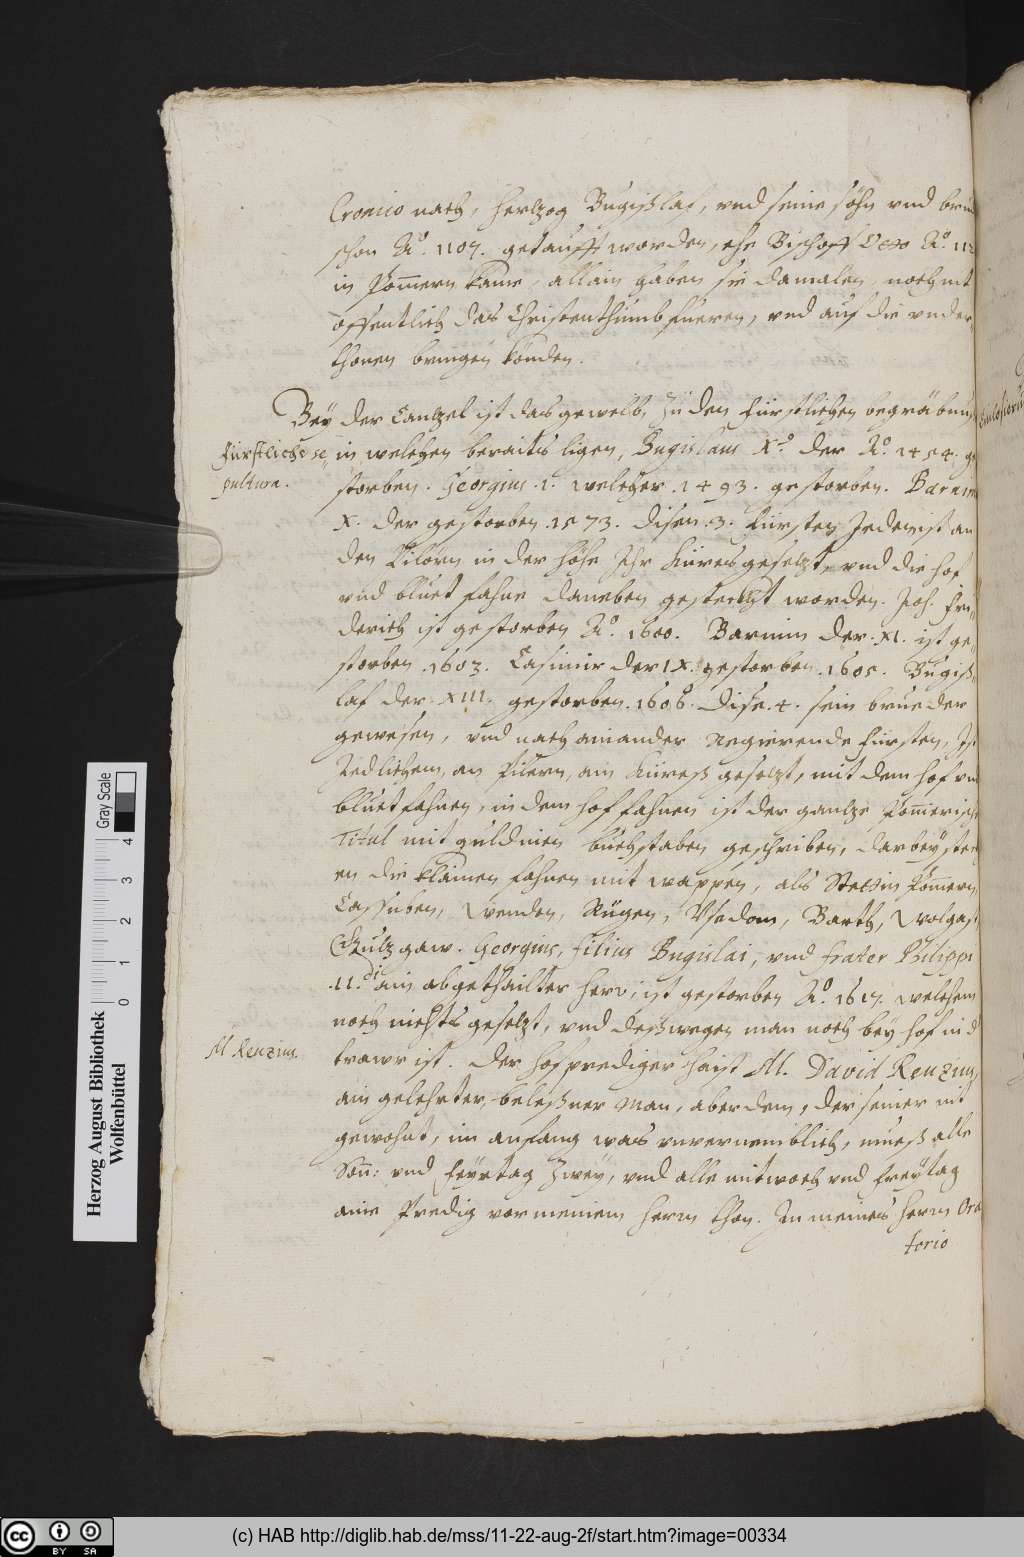 Cronico nach, Hertzog Bugißlaf, vnd seine söhn vnd brue
schon Aº. 1107. getaufft worden, ehe Bischoff Otto Aº. 112
in Pom̄ern kame, allain haben sie damalen, noch nit
offentlich das Christenthumb fueren, vnd auf die vnder=
thonen bringen könden.
Bey der Cantzel ist das gewelb, zu den Fürstlichen begräbnus
Fürstliche se
pultura.
in welchen beraits ligen, Bugislaus Xº. der Aº. 1454. ge
storben. Georgius .1. welcher .1493. gestorben. Barnim
X. der gestorben .1573. disen .3. Fürsten Jeder ist an
den Pilorn in der höhe Ihr Küres gesetzt, vnd die hof
vnd bluet fahne daneben gesteckht worden. Joh. Fri=
derich ist gestorben Aº. 1600. Barnim der .XI. ist ge=
storben .1603. Casimir der IX. gestorben .1605. Bugiß=
laf der XIII. gestorben .1606. Dise .4. sein brueder
gewesen, vnd nach ainander Regierende Fürsten, Ist
Jedlichem, an Pilern, ain Küreß gesetzt, mit dem hof vnd
bluet fahnen, in dem hof fahnen ist der gantze Pom̄erisch
Titul mit guldinen buchstaben geschriben, darbey steck
en die klainen fahnen mit wappen, als Stettin Pom̄ern,
Cassuben, Wenden, Rügen, Vsedom, Barth, Wolgast
Gutzgaw. Georgius, filius Bugislai, vnd frater Philippi
.II.di ain abgethailter herr, ist gestorben Aº. 1617. welchem
noch nichts gesetzt, vnd deßwegen man noch bey hof in d
trawr ist. Der hofprediger haist M. David Reuzius,
M. Reuzius.
ain gelehrter, beleßner man, aber dem, der seiner nit
gewohnt, im anfang was vnvernemblich, mueß alle
Son̄: vnd Feyrtag zwey, vnd alle mitwoch vnd Freytag
aine Predig vor meinem herrn thon. In meines herrn Ora
torio
Herzog August Bibliothek
Wolfenbüttel
Gray Scale
0 1 2 3 4
(c) HAB http://diglib.hab.de/mss/11-22-aug-2f/start.htm?image=00334
cc BY SA